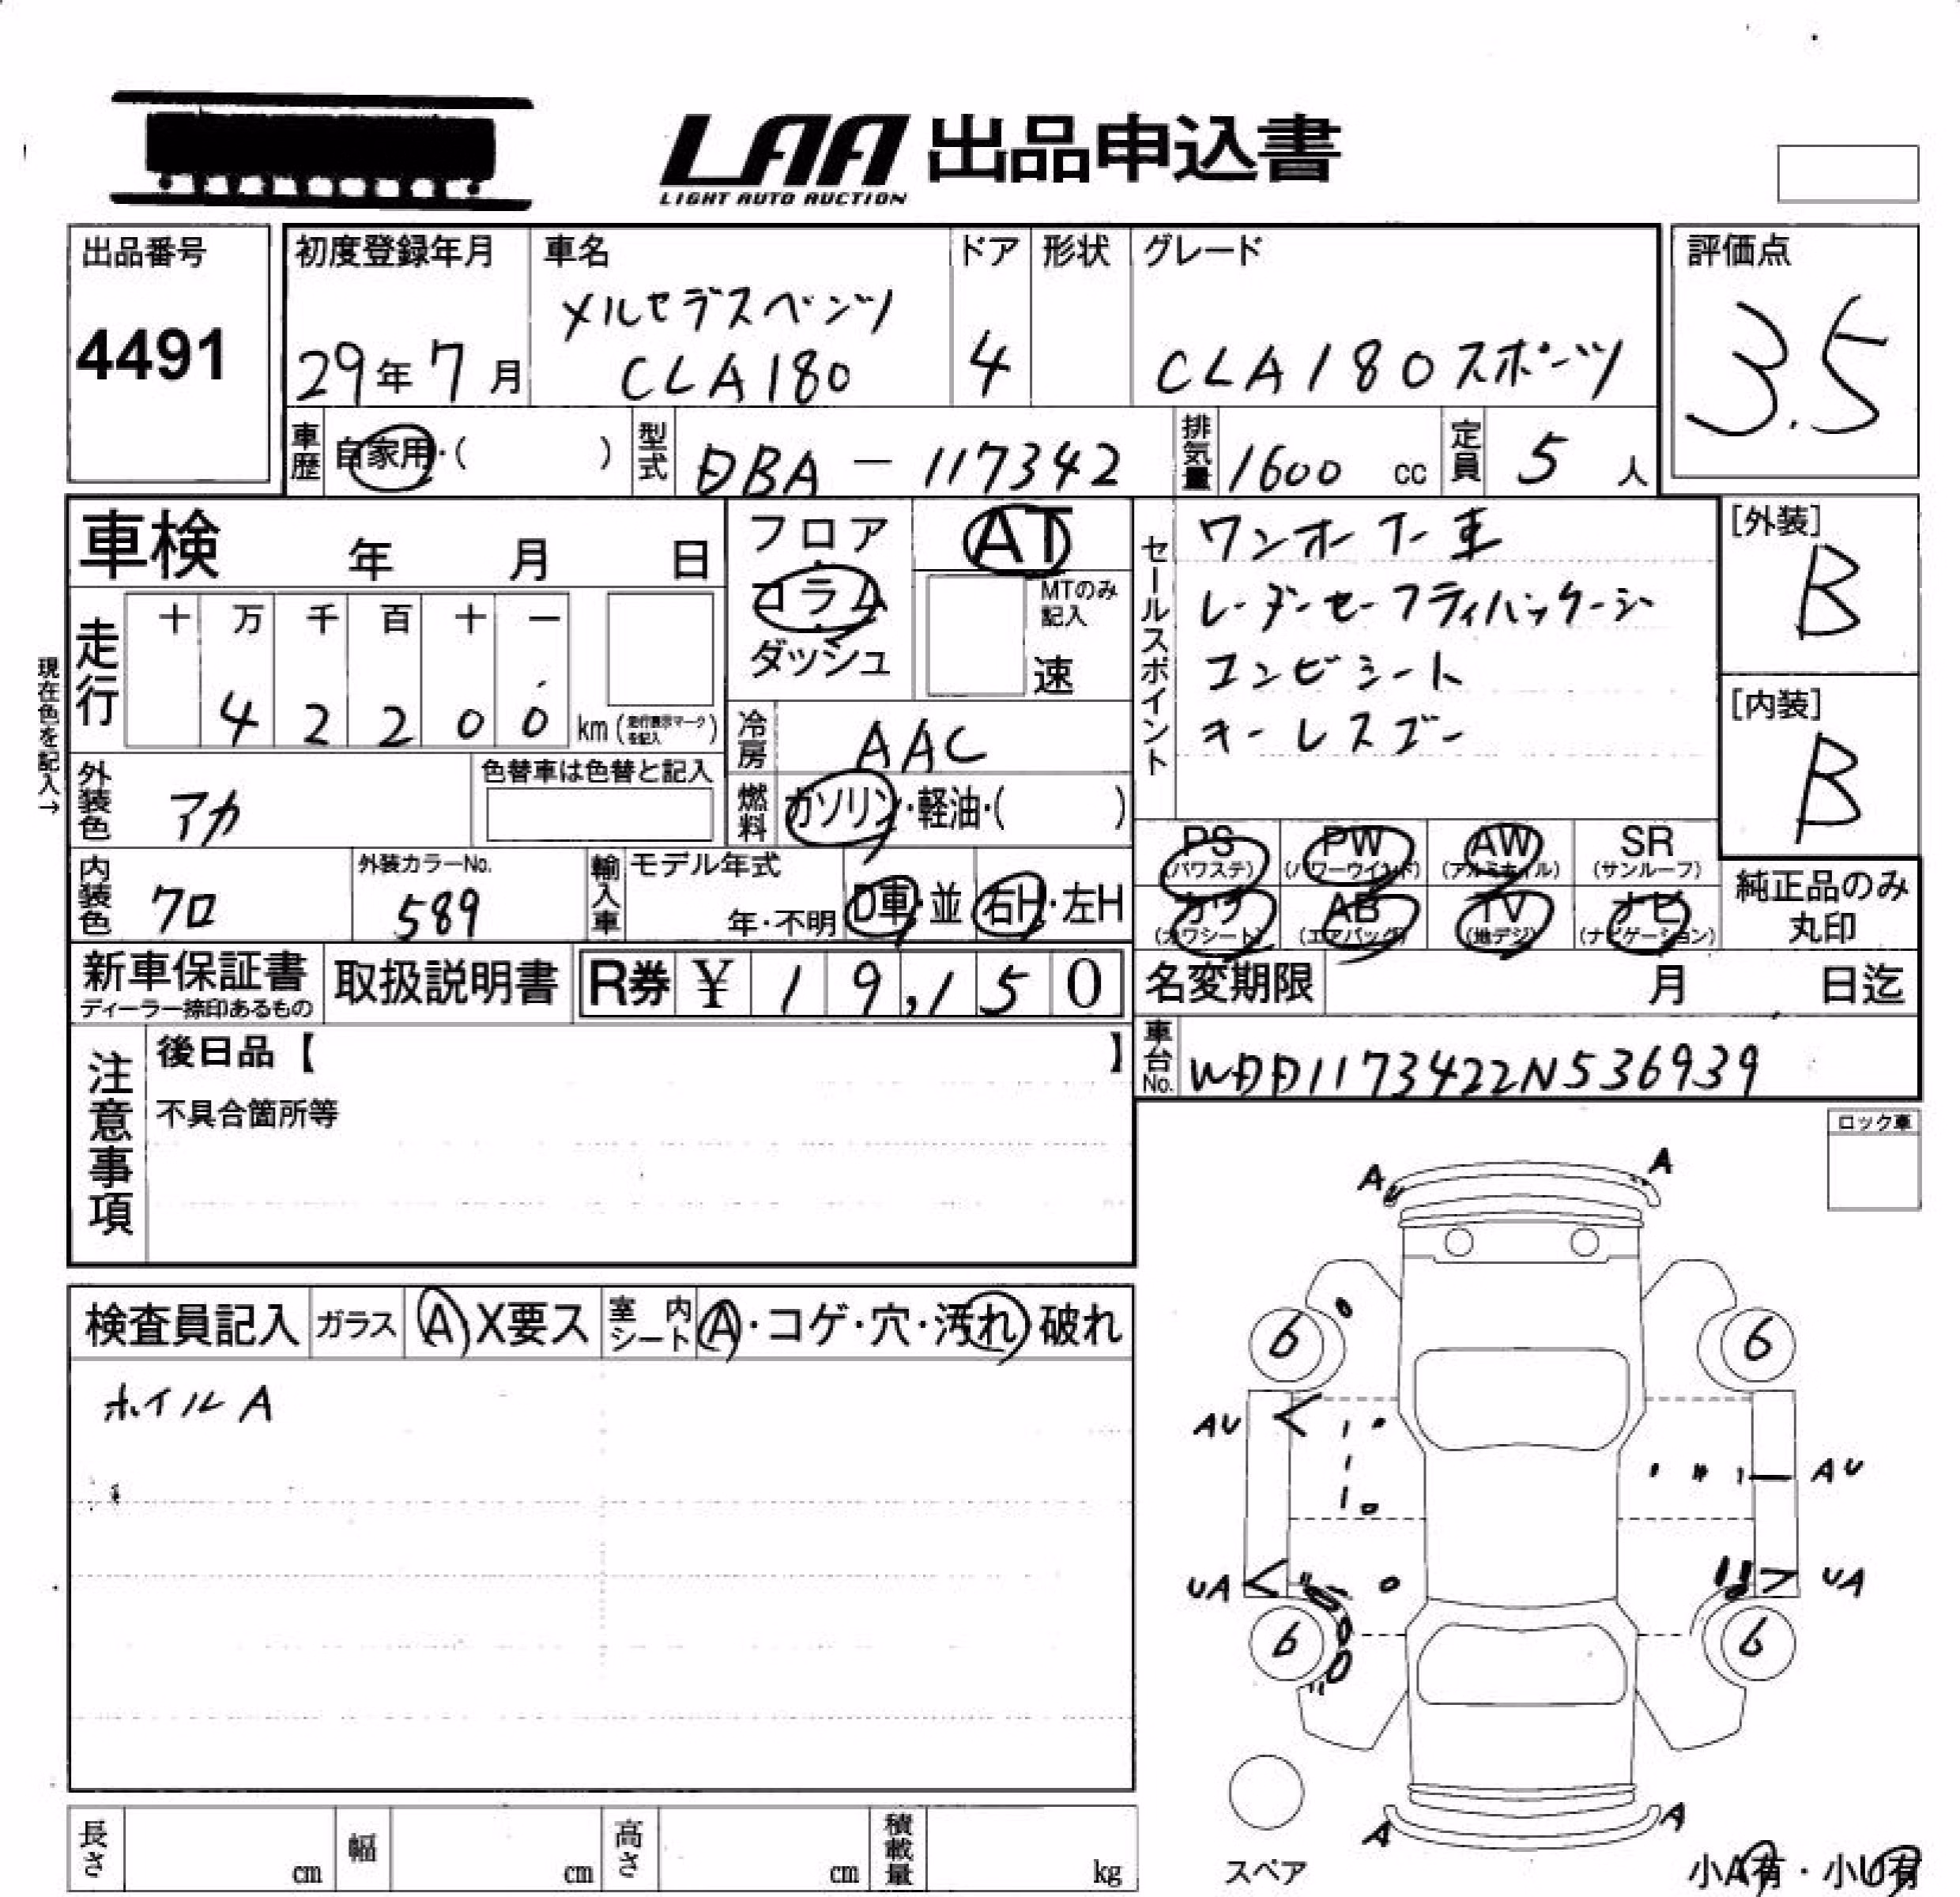 LAA 出品申込書
LIGHT AUTO AUCTION
出品番号
4491
初度登録年月
29年7月
車名
メルセデスベンツ
CLA180
ドア
4
形状
グレード
CLA180スポーツ
評価点
3.5
車歴 自家用・( )
型式 DBA-117342
排気量 1600 cc
定員 5 人
車検 年 月 日
フロア
コラム
ダッシュ
AT
MTのみ記入
速
セールスポイント
ワンオーナー車
レーダーセーフティパッケージ
コンビシート
キーレスゴー
[外装]
B
[内装]
B
現在色を記入→
走行
十 万 千 百 十 一
4 2 2 0 0
km(走行表示マークを記入)
冷房 AAC
燃料 ガソリン・軽油・( )
外装色 アカ
色替車は色替と記入
内装色 クロ
外装カラーNo.
589
輸入車
モデル年式
年・不明
D車・並
右H・左H
PS (パワステ)
PW (パワーウインド)
AW (アルミホイル)
SR (サンルーフ)
カワ (カワシート)
AB (エアバッグ)
TV (地デジ)
ナビ (ナビゲーション)
純正品のみ
丸印
新車保証書
ディーラー捺印あるもの
取扱説明書
R券 ¥ 19,150
名変期限 月 日迄
車台No. WDD1173422N536939
注意事項
後日品【 】
不具合箇所等
ロック車
検査員記入
ガラス A X要ス
室内シート A・コゲ・穴・汚れ 破れ
ホイルA
A A
6 6
AU AU
UA UA
6 6
A A
スペア
小A有・小U有
長さ cm
幅 cm
高さ cm
積載量 kg